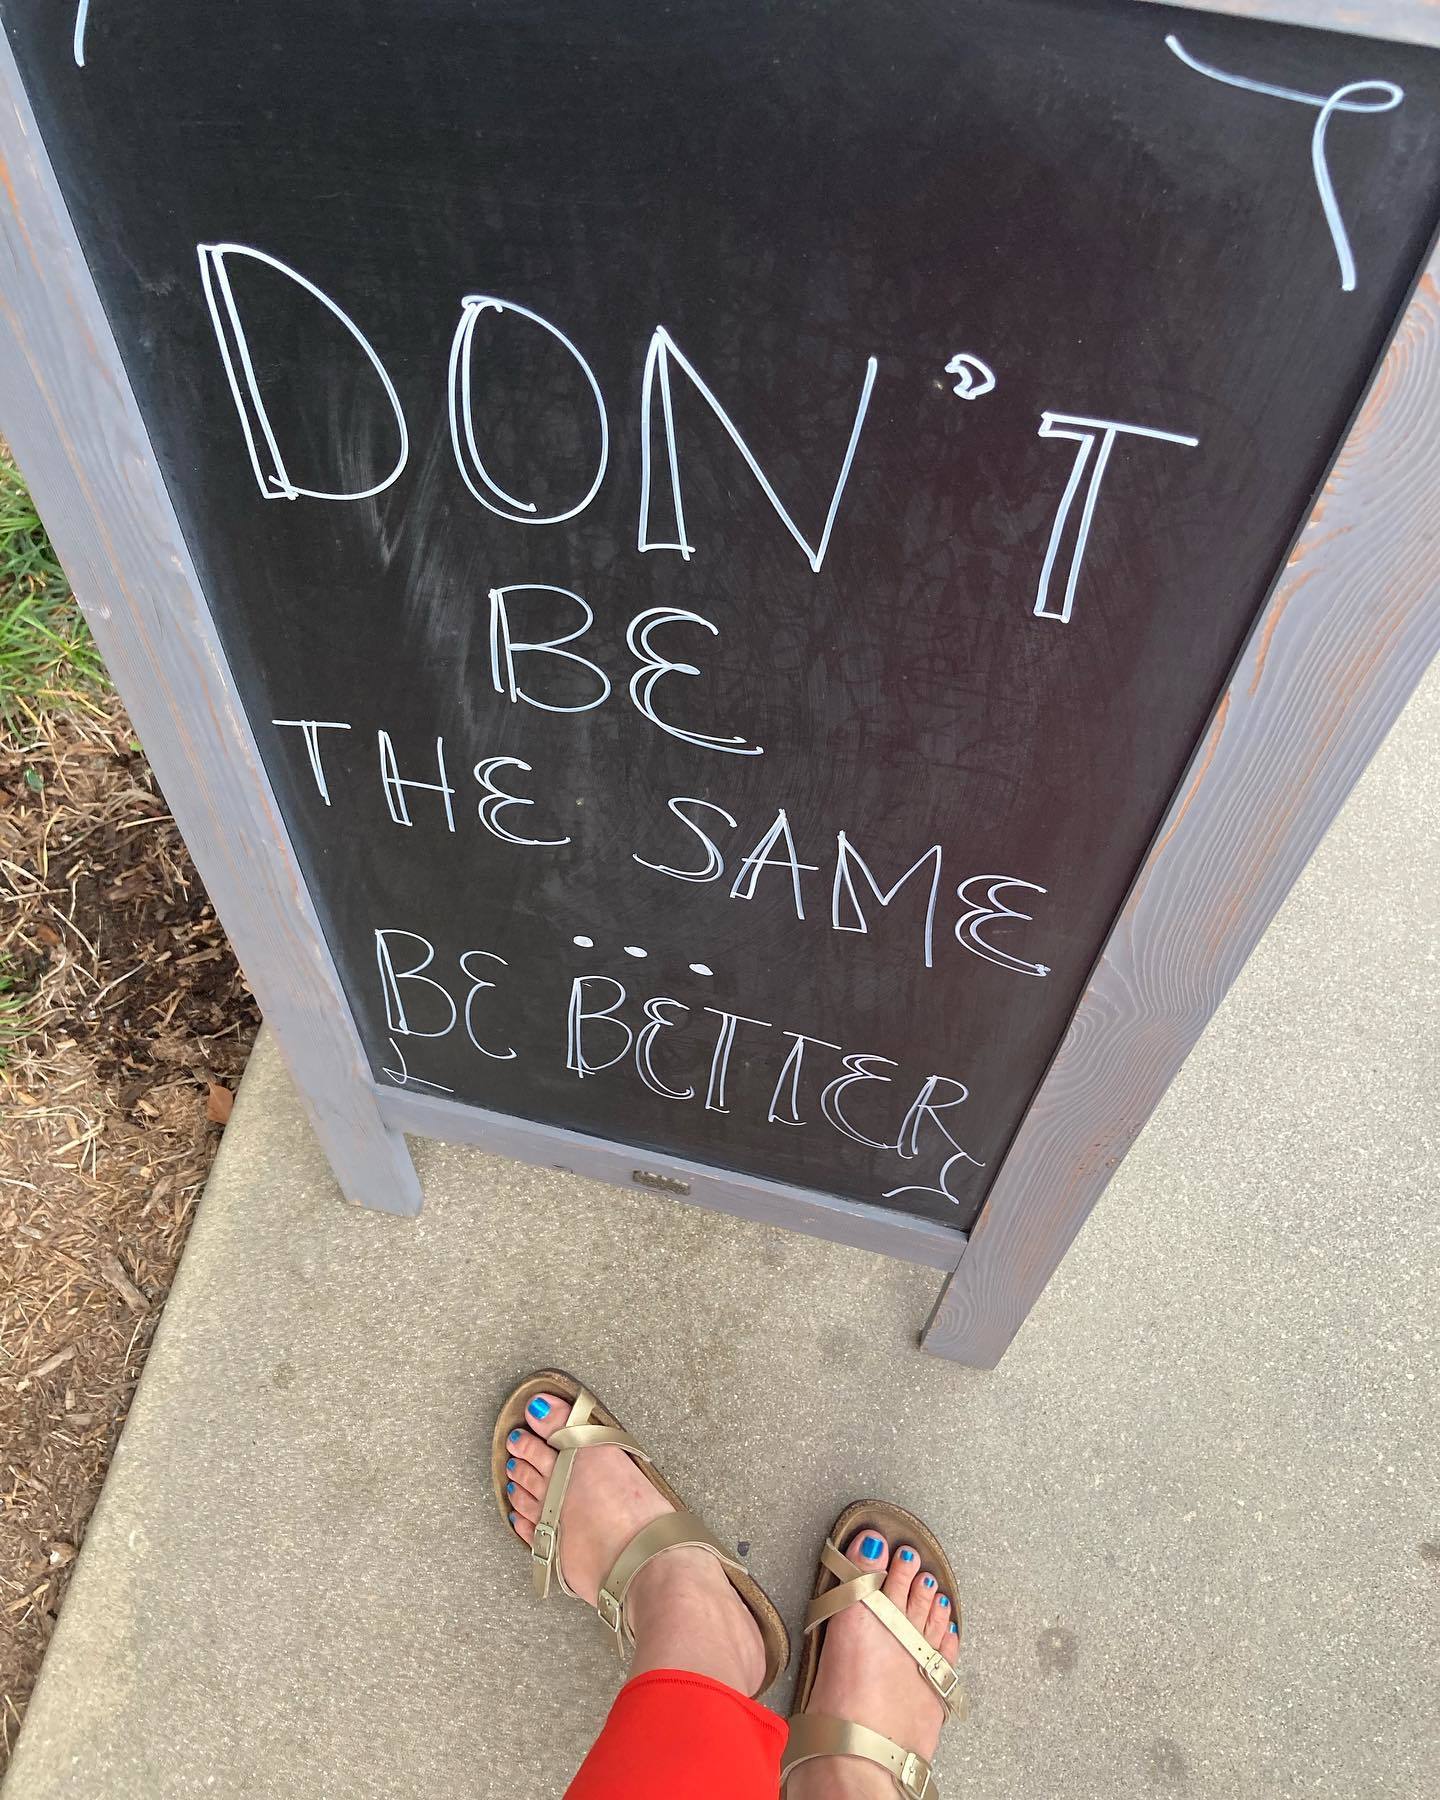 DON'T
BE
THE SAME
...
BE BETTER